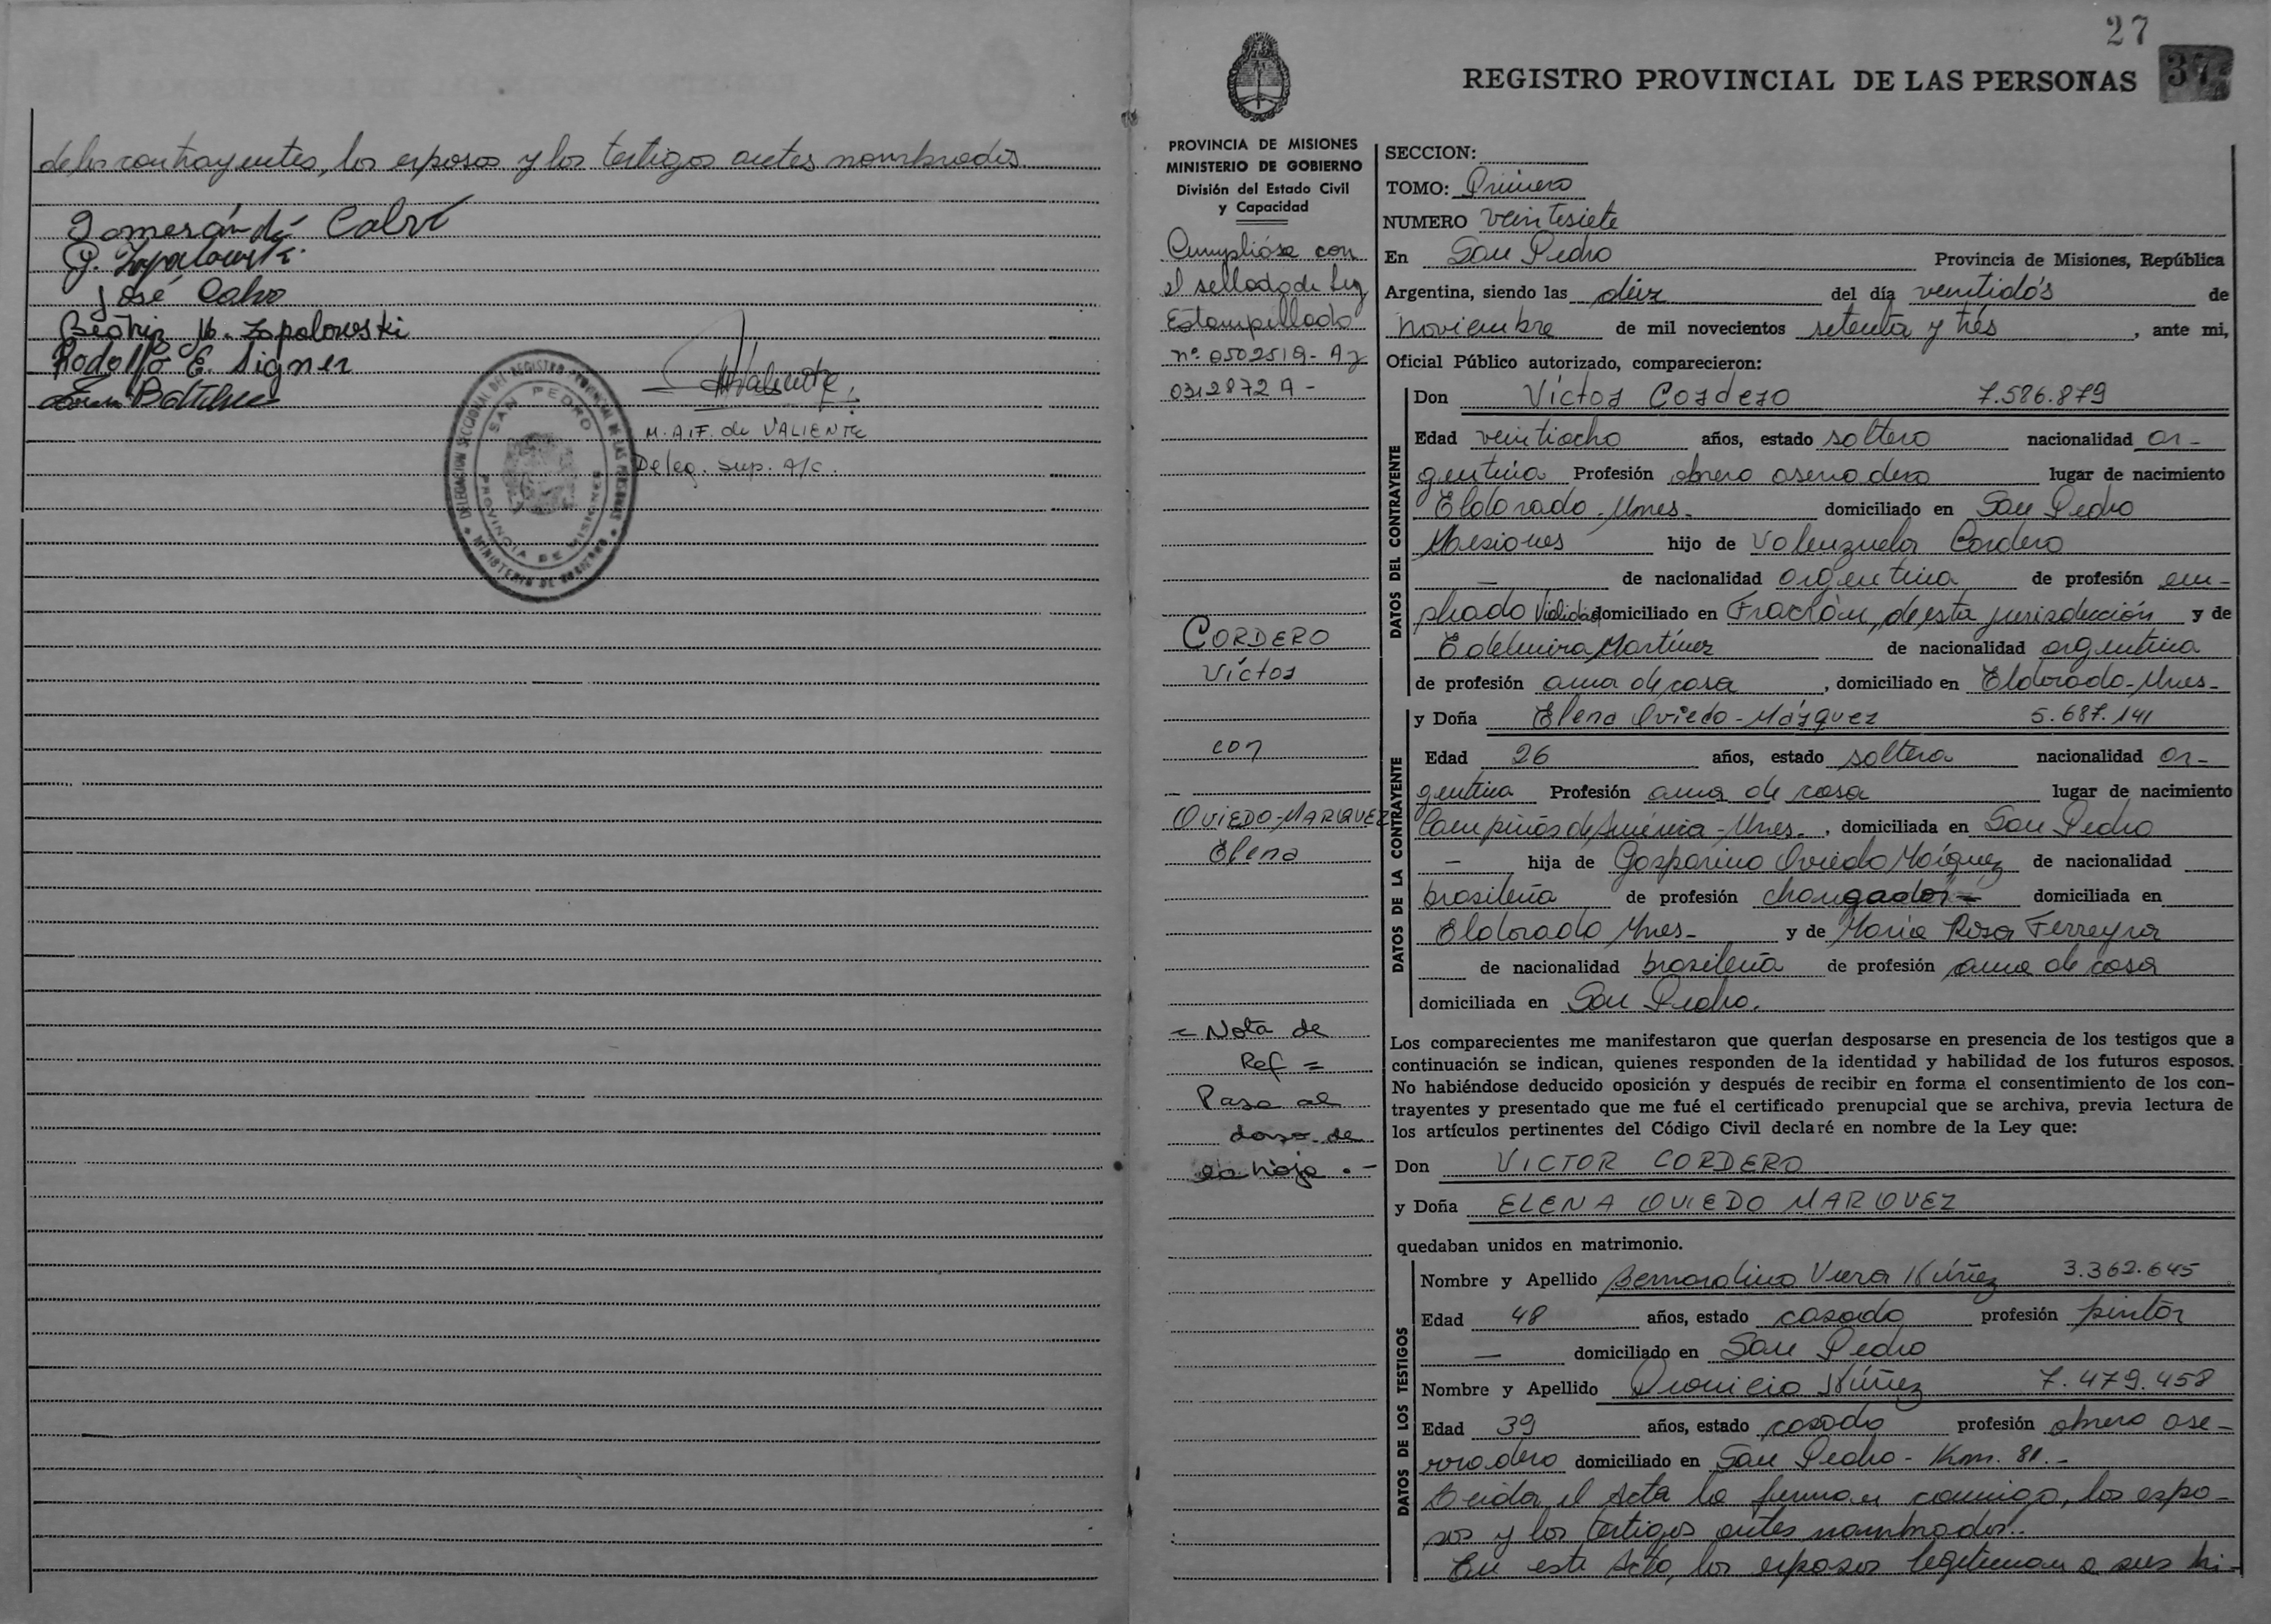 de los contrayentes, los esposos y los testigos antes nombrados.
Calvi
José Calvo
Beatriz M. Zapalowski
Rodolfo E. Signer
M.A.F. de VALIENTE
Deleg. Sup. A/c.
DELEGACION SECCIONAL DEL REGISTRO PROVINCIAL DE LAS PERSONAS
SAN PEDRO
PROVINCIA DE MISIONES
MINISTERIO DE GOBIERNO
27
REGISTRO PROVINCIAL DE LAS PERSONAS 37
PROVINCIA DE MISIONES
MINISTERIO DE GOBIERNO
División del Estado Civil
y Capacidad
Cumplióse con
el sellado de ley
Estampillado
nº 0502519 - A y
0312872 A -
CORDERO
Víctor
con
OVIEDO-MARQUEZ
Elena
= Nota de
Ref =
Pasa al
dorso de
la hoja . -
SECCION:
TOMO: Primero
NUMERO veintisiete
En San Pedro Provincia de Misiones, República
Argentina, siendo las diez del día veintidós de
noviembre de mil novecientos setenta y tres, ante mi,
Oficial Público autorizado, comparecieron:
DATOS DEL CONTRAYENTE
Don Víctor Cordero 7.586.879
Edad veintiocho años, estado soltero nacionalidad ar-
gentina Profesión obrero aserradero lugar de nacimiento
Eldorado - Mnes - domiciliado en San Pedro
Misiones hijo de Valenzuela Cordero
— de nacionalidad argentina de profesión em-
pleado Vialidad domiciliado en Fracrán, de esta jurisdicción y de
Edelmira Martínez de nacionalidad argentina
de profesión ama de casa, domiciliado en Eldorado - Mnes -
DATOS DE LA CONTRAYENTE
y Doña Elena Oviedo - Márquez 5.687.141
Edad 26 años, estado soltera nacionalidad ar-
gentina Profesión ama de casa lugar de nacimiento
Campiñas de América - Mnes -, domiciliada en San Pedro
— hija de Gasparino Oviedo Márquez de nacionalidad
brasileña de profesión changador = domiciliada en
Eldorado Mnes - y de María Rosa Ferreyra
de nacionalidad brasileña de profesión ama de casa
domiciliada en San Pedro.
Los comparecientes me manifestaron que querían desposarse en presencia de los testigos que a
continuación se indican, quienes responden de la identidad y habilidad de los futuros esposos.
No habiéndose deducido oposición y después de recibir en forma el consentimiento de los con-
trayentes y presentado que me fué el certificado prenupcial que se archiva, previa lectura de
los artículos pertinentes del Código Civil declaré en nombre de la Ley que:
Don VICTOR CORDERO
y Doña ELENA OVIEDO MARQUEZ
quedaban unidos en matrimonio.
DATOS DE LOS TESTIGOS
Nombre y Apellido Bernardino Viera Núñez 3.362.645
Edad 48 años, estado casado profesión pintor
— domiciliado en San Pedro
Nombre y Apellido Dionicio Núñez 7.479.458
Edad 39 años, estado casado profesión obrero ase-
rradero domiciliado en San Pedro - Km. 81. -
Leida el Acta la firman conmigo, los espo-
sos y los testigos antes nombrados..
En este Acto, los esposos legitiman a sus hi-